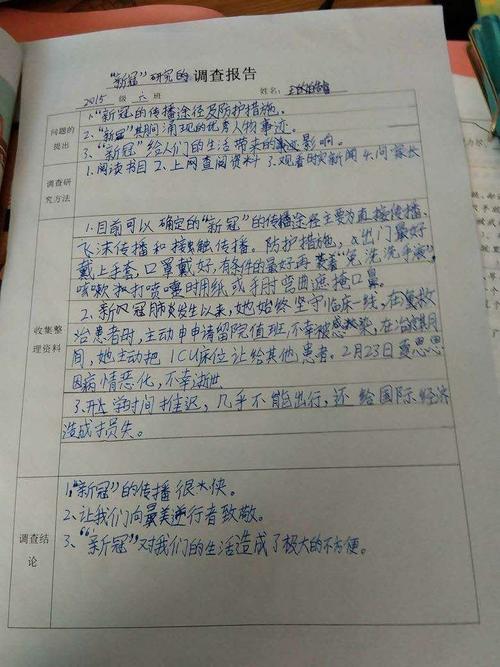 “新冠”研究的 调查报告
2015 级 六 班 姓名：
问题的提出
1、“新冠”的传播途径及防护措施。
2、“新冠”其间涌现的优秀人物事迹。
3、“新冠”给人们的生活带来的影响。
调查研究方法
1.阅读书目 2.上网查阅资料 3.观看时实新闻 4.问家长
收集整理资料
1.目前可以确定的“新冠”的传播途径主要为直接传播、
飞沫传播和接触传播。防护措施，出门最好
戴上手套，口罩戴好，有条件的最好再装着“免洗洗手液”，
咳嗽和打喷嚏时用纸或手肘弯曲遮掩口鼻。
2、新冠肺炎发生以来，她始终坚守临床一线，在救
治患者时，主动申请留院值班，不幸被感染，在治疗其
间，她主动把ICU床位让给其他患者。2月23日夏思思
因病情恶化，不幸逝世
3、开学时间推迟，几乎不能出行，还给国际经济
造成损失。
调查结论
1.“新冠”的传播很大快。
2、让我们向最美逆行者致敬。
3、“新冠”对我们的生活造成了极大的不方便。